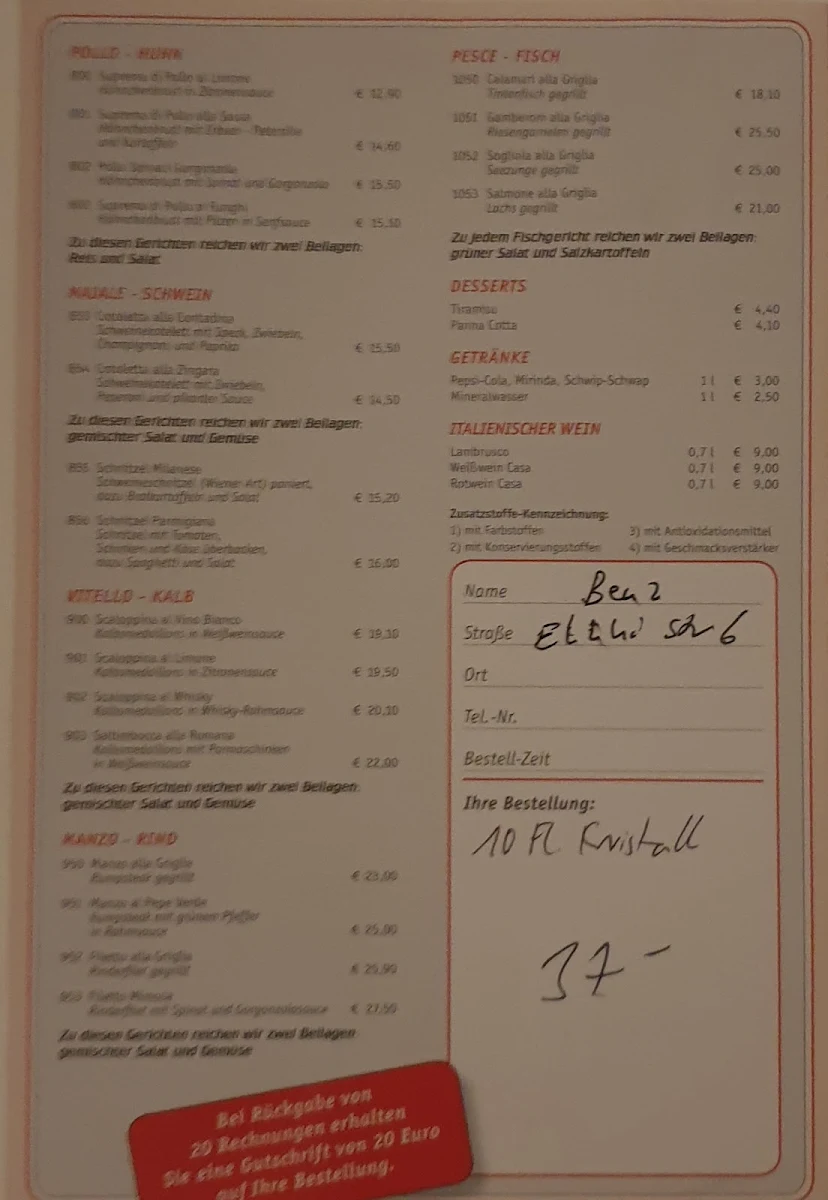 POLLO - HUHN
800 Suprema di Pollo al Limone
Hähnchenbrust in Zitronensauce € 12,90
801 Suprema di Pollo alla Sassa
Hähnchenbrust mit Erbsen - Petersilie
und Kartoffeln € 14,60
802 Pollo Spinaci Gorgonzola
Hähnchenbrust mit Spinat und Gorgonzola € 15,50
Suprema di Pollo ai Funghi
Hähnchenbrust mit Pilzen in Senfsauce
Zu diesen Gerichten reichen wir zwei Beilagen:
Reis und Salat
MAIALE - SCHWEIN
Cotoletta alla Contadina
Schweinekotelett mit Speck, Zwiebeln,
Champignons und Paprika € 15,50
854 Cotoletta alla Zingara
Schweinekotelett mit Zwiebeln,
Peperoni und pikanter Sauce € 14,50
Zu diesen Gerichten reichen wir zwei Beilagen:
gemischter Salat und Gemüse
855 Schnitzel Milanese
Schweineschnitzel (Wiener Art) paniert,
dazu Bratkartoffeln und Salat € 15,20
856 Schnitzel Parmigiana
Schnitzel mit Tomaten,
Schinken und Käse überbacken,
dazu Spaghetti und Salat € 16,00
VITELLO - KALB
900 Scaloppina al Vino Bianco
Kalbsmedaillons in Weißweinsauce € 19,10
901 Scaloppina al Limone
Kalbsmedaillons in Zitronensauce € 19,50
902 Scaloppina al Whisky
Kalbsmedaillons in Whisky-Rahmsauce € 20,10
903 Saltimbocca alla Romana
Kalbsmedaillons mit Parmaschinken
in Weißweinsauce € 22,00
Zu diesen Gerichten reichen wir zwei Beilagen:
gemischter Salat und Gemüse
MANZO - RIND
950 Manzo alla Griglia
Rumpsteak gegrillt € 23,00
951 Manzo al Pepe Verde
Rumpsteak mit grünem Pfeffer
in Rahmsauce € 25,00
952 Filetto alla Griglia
Rinderfilet gegrillt € 25,90
953 Filetto Mimosa
Rinderfilet mit Spinat und Gorgonzolasauce € 27,50
Zu diesen Gerichten reichen wir zwei Beilagen:
gemischter Salat und Gemüse
Bei Rückgabe von
20 Rechnungen erhalten
Sie eine Gutschrift von 20 Euro
auf Ihre Bestellung.
PESCE - FISCH
1050 Calamari alla Griglia
Tintenfisch gegrillt € 18,10
1051 Gamberoni alla Griglia
Riesengarnelen gegrillt € 25,50
1052 Sogliola alla Griglia
Seezunge gegrillt € 25,00
1053 Salmone alla Griglia
Lachs gegrillt € 21,00
Zu jedem Fischgericht reichen wir zwei Beilagen:
grüner Salat und Salzkartoffeln
DESSERTS
Tiramisu € 4,40
Panna Cotta € 4,10
GETRÄNKE
Pepsi-Cola, Mirinda, Schwip-Schwap 1 l € 3,00
Mineralwasser 1 l € 2,50
ITALIENISCHER WEIN
Lambrusco 0,7 l € 9,00
Weißwein Casa 0,7 l € 9,00
Rotwein Casa 0,7 l € 9,00
Zusatzstoffe-Kennzeichnung:
1) mit Farbstoffen 3) mit Antioxidationsmittel
2) mit Konservierungsstoffen 4) mit Geschmacksverstärker
Name Benz
Straße 6
Ort
Tel.-Nr.
Bestell-Zeit
Ihre Bestellung:
10 Fl. Kristall
37-